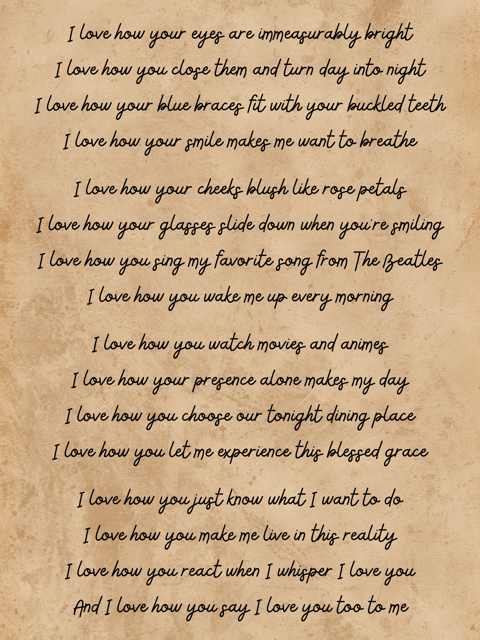 I love how your eyes are immeasurably bright
I love how you close them and turn day into night
I love how your blue braces fit with your buckled teeth
I love how your smile makes me want to breathe
I love how your cheeks blush like rose petals
I love how your glasses slide down when you're smiling
I love how you sing my favorite song from The Beatles
I love how you wake me up every morning
I love how you watch movies and animes
I love how your presence alone makes my day
I love how you choose our tonight dining place
I love how you let me experience this blessed grace
I love how you just know what I want to do
I love how you make me live in this reality
I love how you react when I whisper I love you
And I love how you say I love you too to me